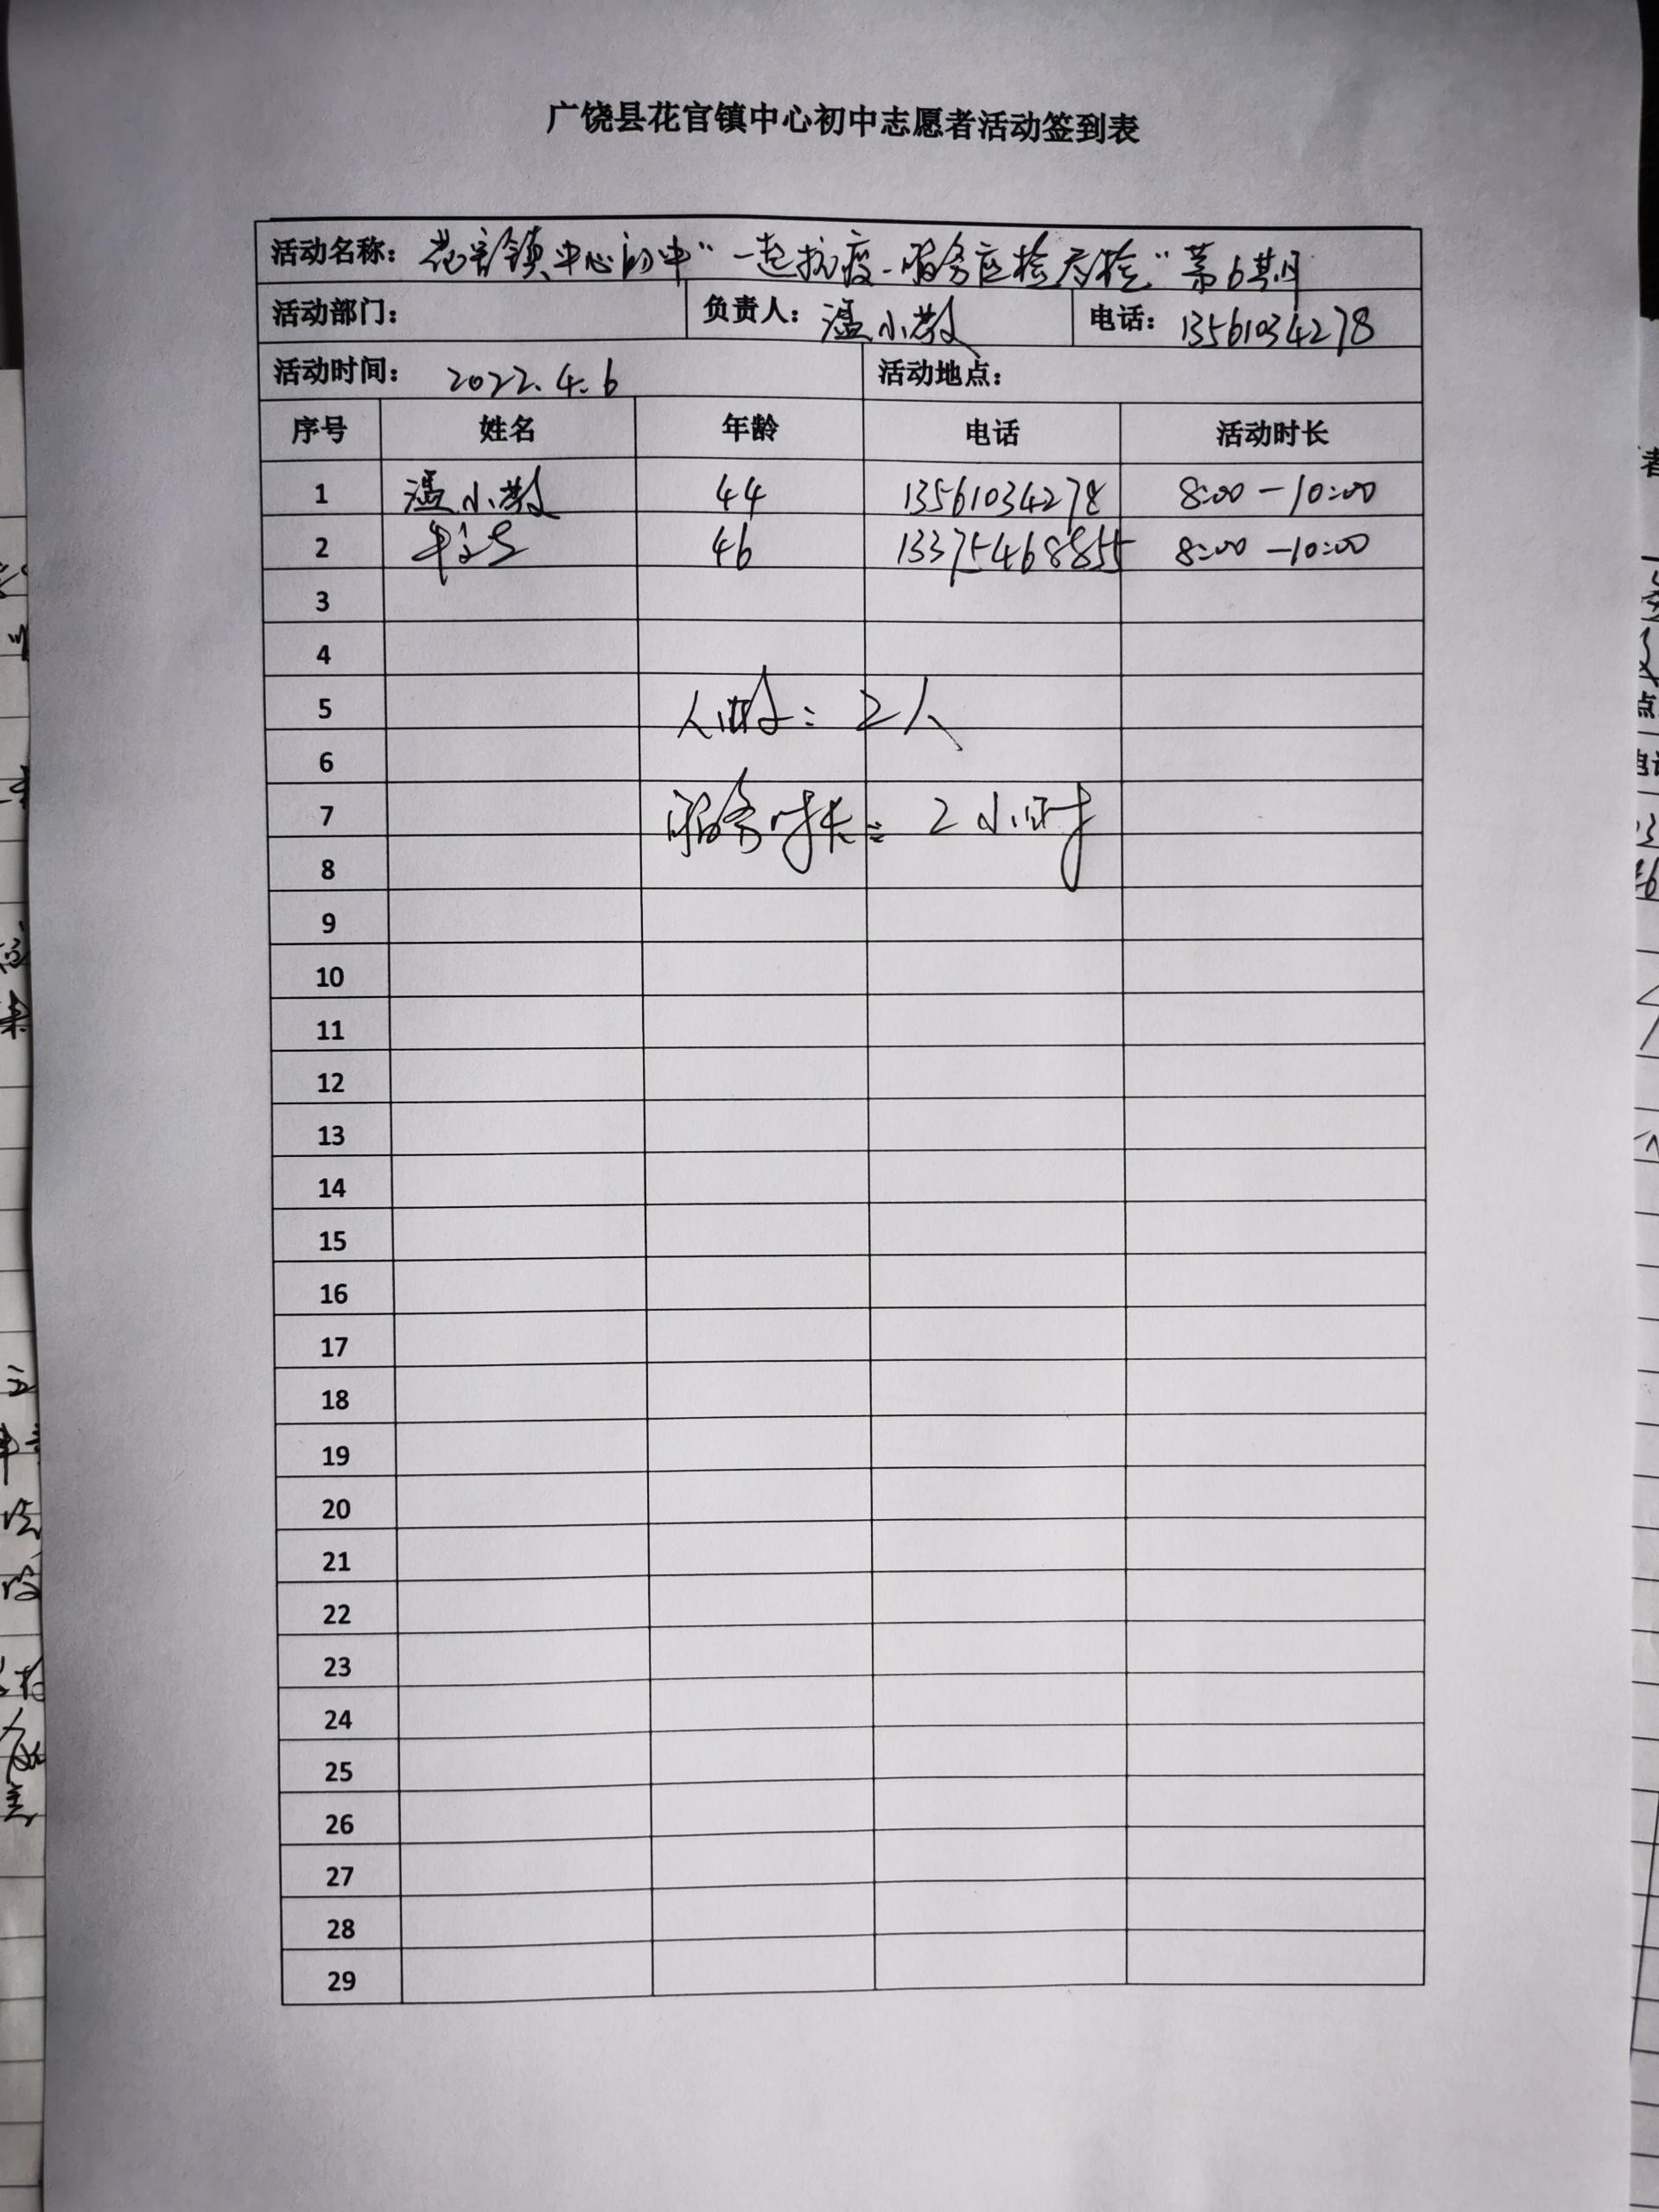 广饶县花官镇中心初中志愿者活动签到表
活动名称：花官镇中心初中“一起抗疫-服务应检尽检”第6期
活动部门： 负责人：温小敏 电话：13561034278
活动时间：2022.4.6 活动地点：
序号 姓名 年龄 电话 活动时长
1 温小敏 44 13561034278 8:00-10:00
2 46 13375468855 8:00-10:00
3
4
5 人数：2人
6
7 服务时长：2小时
8
9
10
11
12
13
14
15
16
17
18
19
20
21
22
23
24
25
26
27
28
29